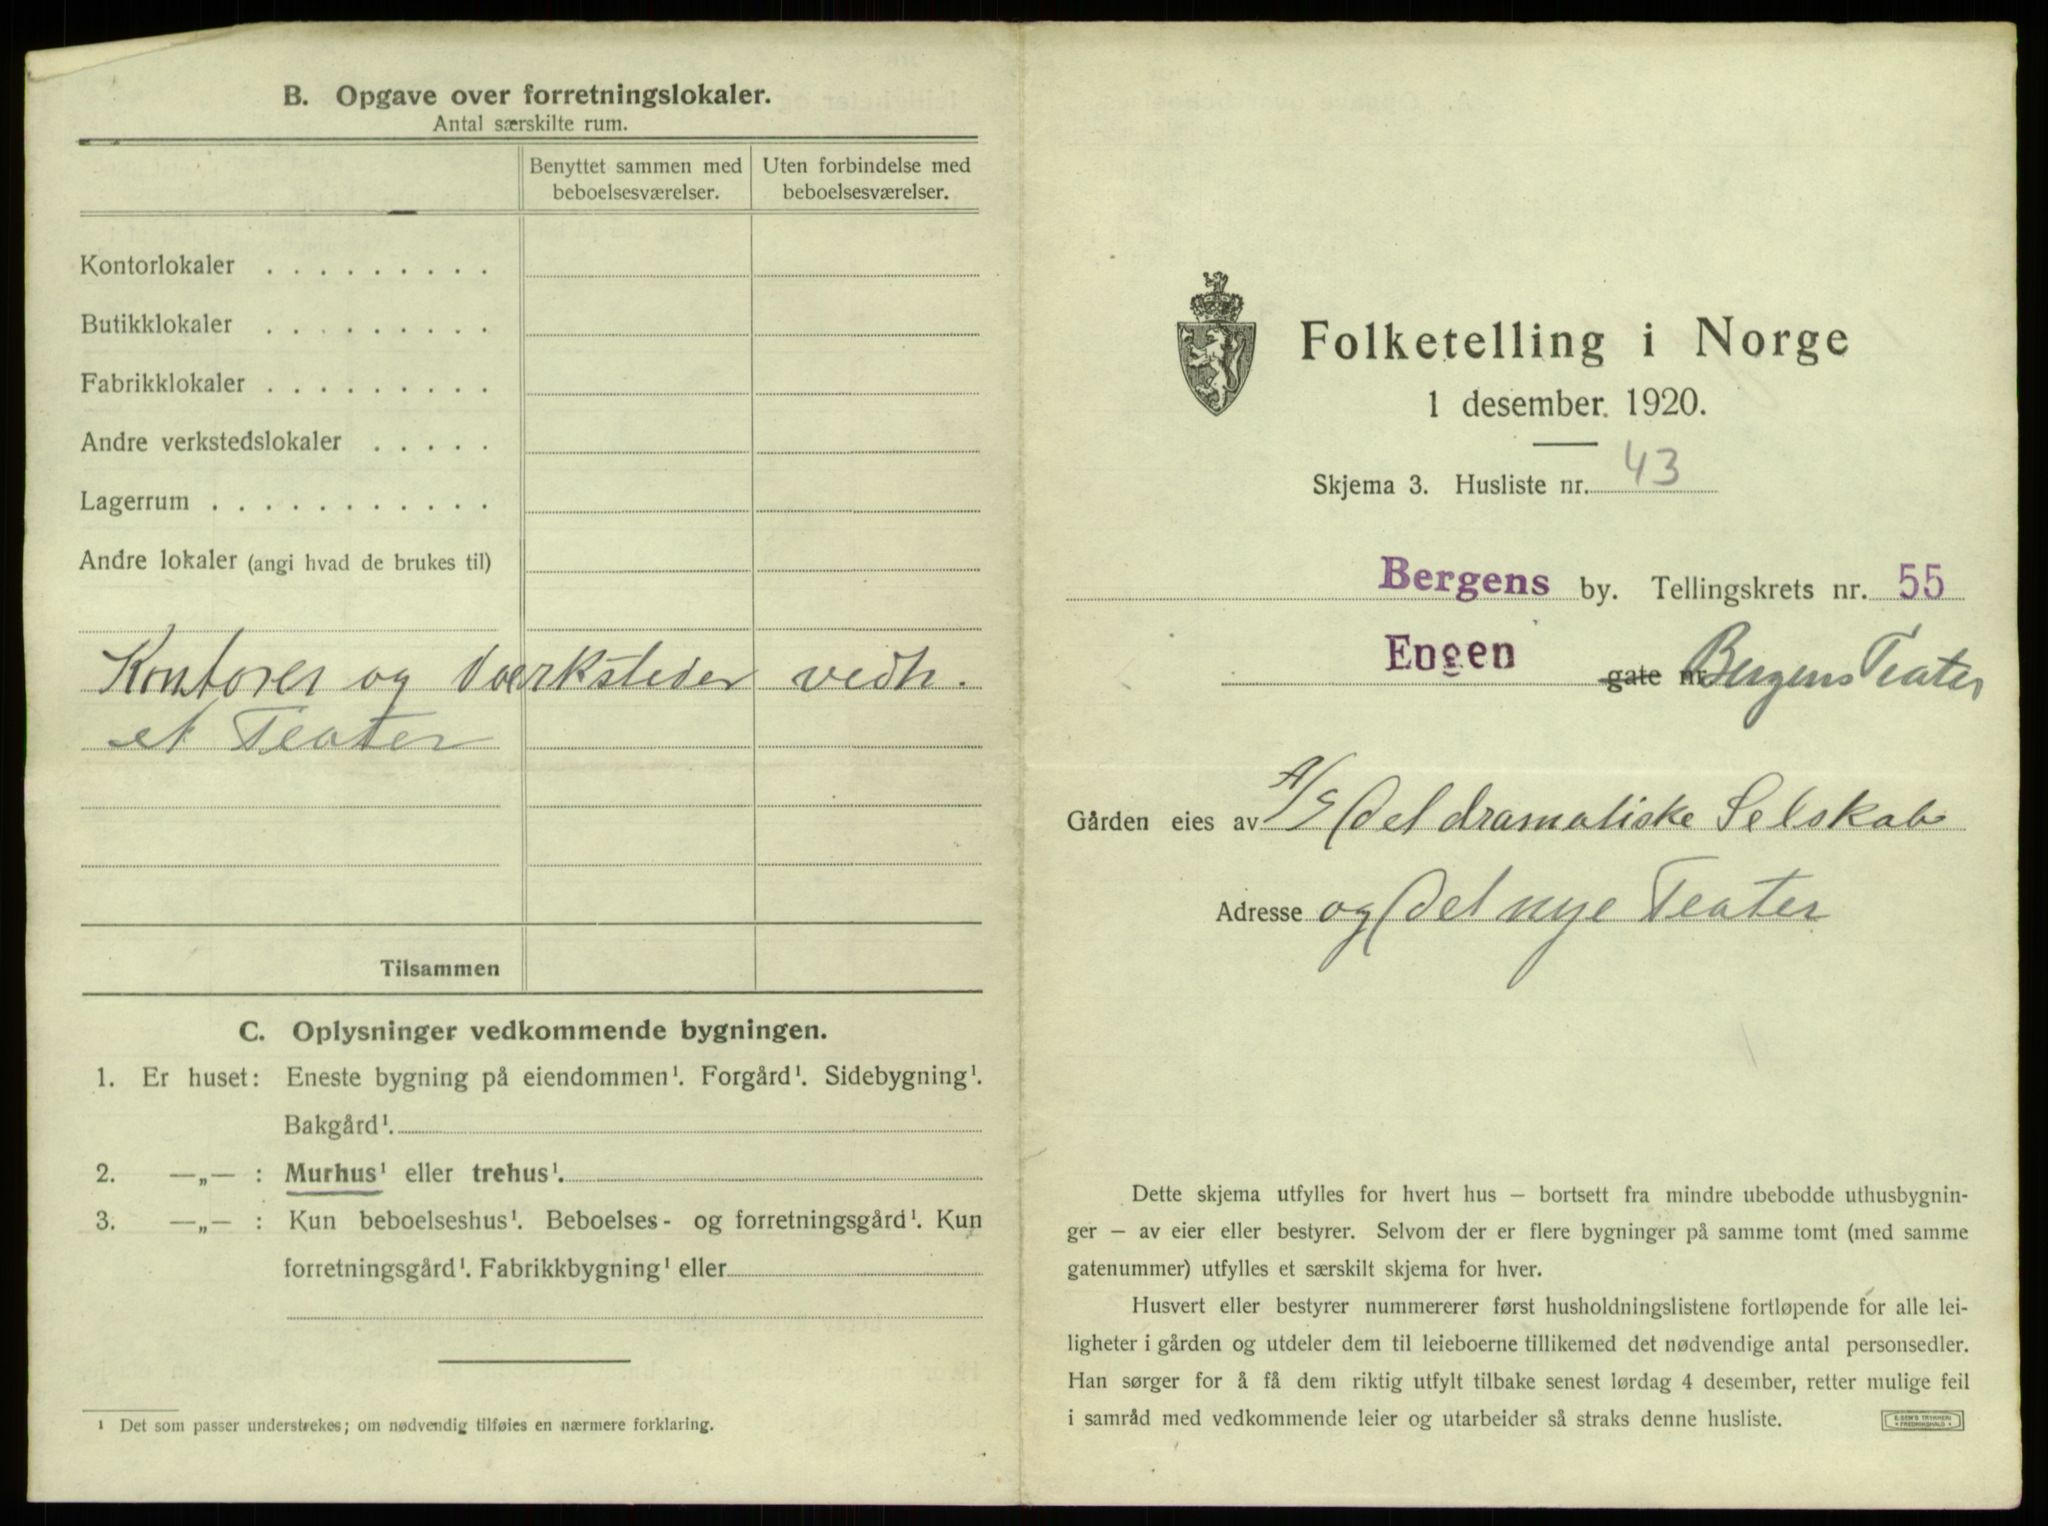 B. Opgave over forretningslokaler.
Antal særskilte rum.
Benyttet sammen med beboelsesværelser.
Uten forbindelse med beboelsesværelser.
Kontorlokaler . . . . . . . . .
Butikklokaler . . . . . . . . .
Fabrikklokaler . . . . . . . . .
Andre verkstedslokaler . . . . .
Lagerrum . . . . . . . . . . .
Andre lokaler (angi hvad de brukes til)
Kontorer og Værksteder vedk.
et Teater
Tilsammen
C. Oplysninger vedkommende bygningen.
1. Er huset: Eneste bygning på eiendommen¹. Forgård¹. Sidebygning¹.
Bakgård¹.
2. —„— : Murhus¹ eller trehus¹.
3. —„— : Kun beboelseshus¹. Beboelses- og forretningsgård¹. Kun
forretningsgård¹. Fabrikkbygning¹ eller
¹ Det som passer understrekes; om nødvendig tilføies en nærmere forklaring.
Folketelling i Norge
1 desember 1920.
Skjema 3. Husliste nr. 43
Bergens by. Tellingskrets nr. 55
Engen gate nr. Bergens Teater
Gården eies av A/S Det dramatiske Selskab
Adresse og Det nye Teater
Dette skjema utfylles for hvert hus – bortsett fra mindre ubebodde uthusbygnin-
ger – av eier eller bestyrer. Selvom der er flere bygninger på samme tomt (med samme
gatenummer) utfylles et særskilt skjema for hver.
Husvert eller bestyrer nummererer først husholdningslistene fortløpende for alle lei-
ligheter i gården og utdeler dem til leieboerne tillikemed det nødvendige antal personsedler.
Han sørger for å få dem riktig utfylt tilbake senest lørdag 4 desember, retter mulige feil
i samråd med vedkommende leier og utarbeider så straks denne husliste.
E. SEM'S TRYKKERI
FREDRIKSHALD